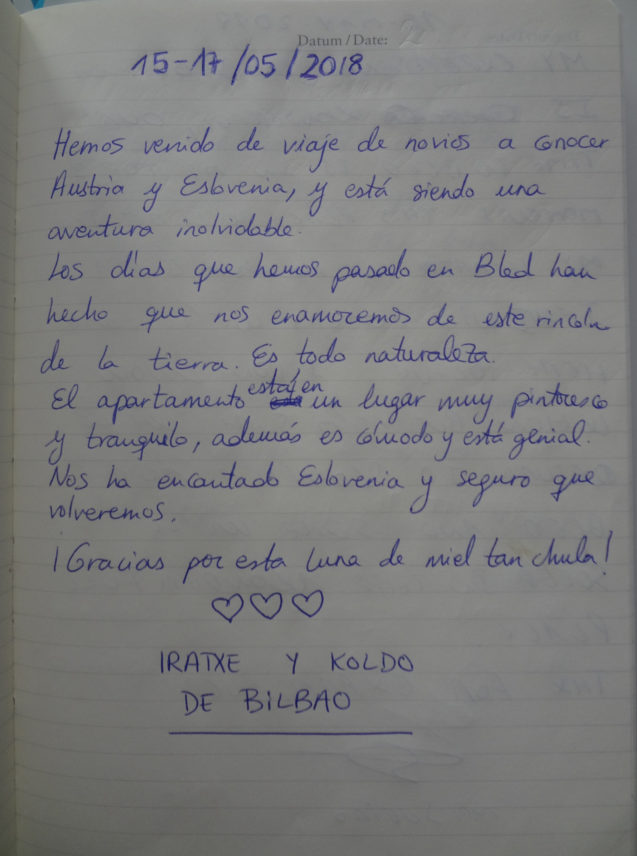 Datum / Date:
15-17/05/2018
Hemos venido de viaje de novios a conocer
Austria y Eslovenia, y está siendo una
aventura inolvidable.
Los días que hemos pasado en Bled han
hecho que nos enamoremos de este rincón
de la tierra. Es todo naturaleza.
El apartamento está en un lugar muy pintoresco
y tranquilo, además es cómodo y está genial.
Nos ha encantado Eslovenia y seguro que
volveremos.
¡Gracias por esta luna de miel tan chula!
♡♡♡
IRATXE Y KOLDO
DE BILBAO